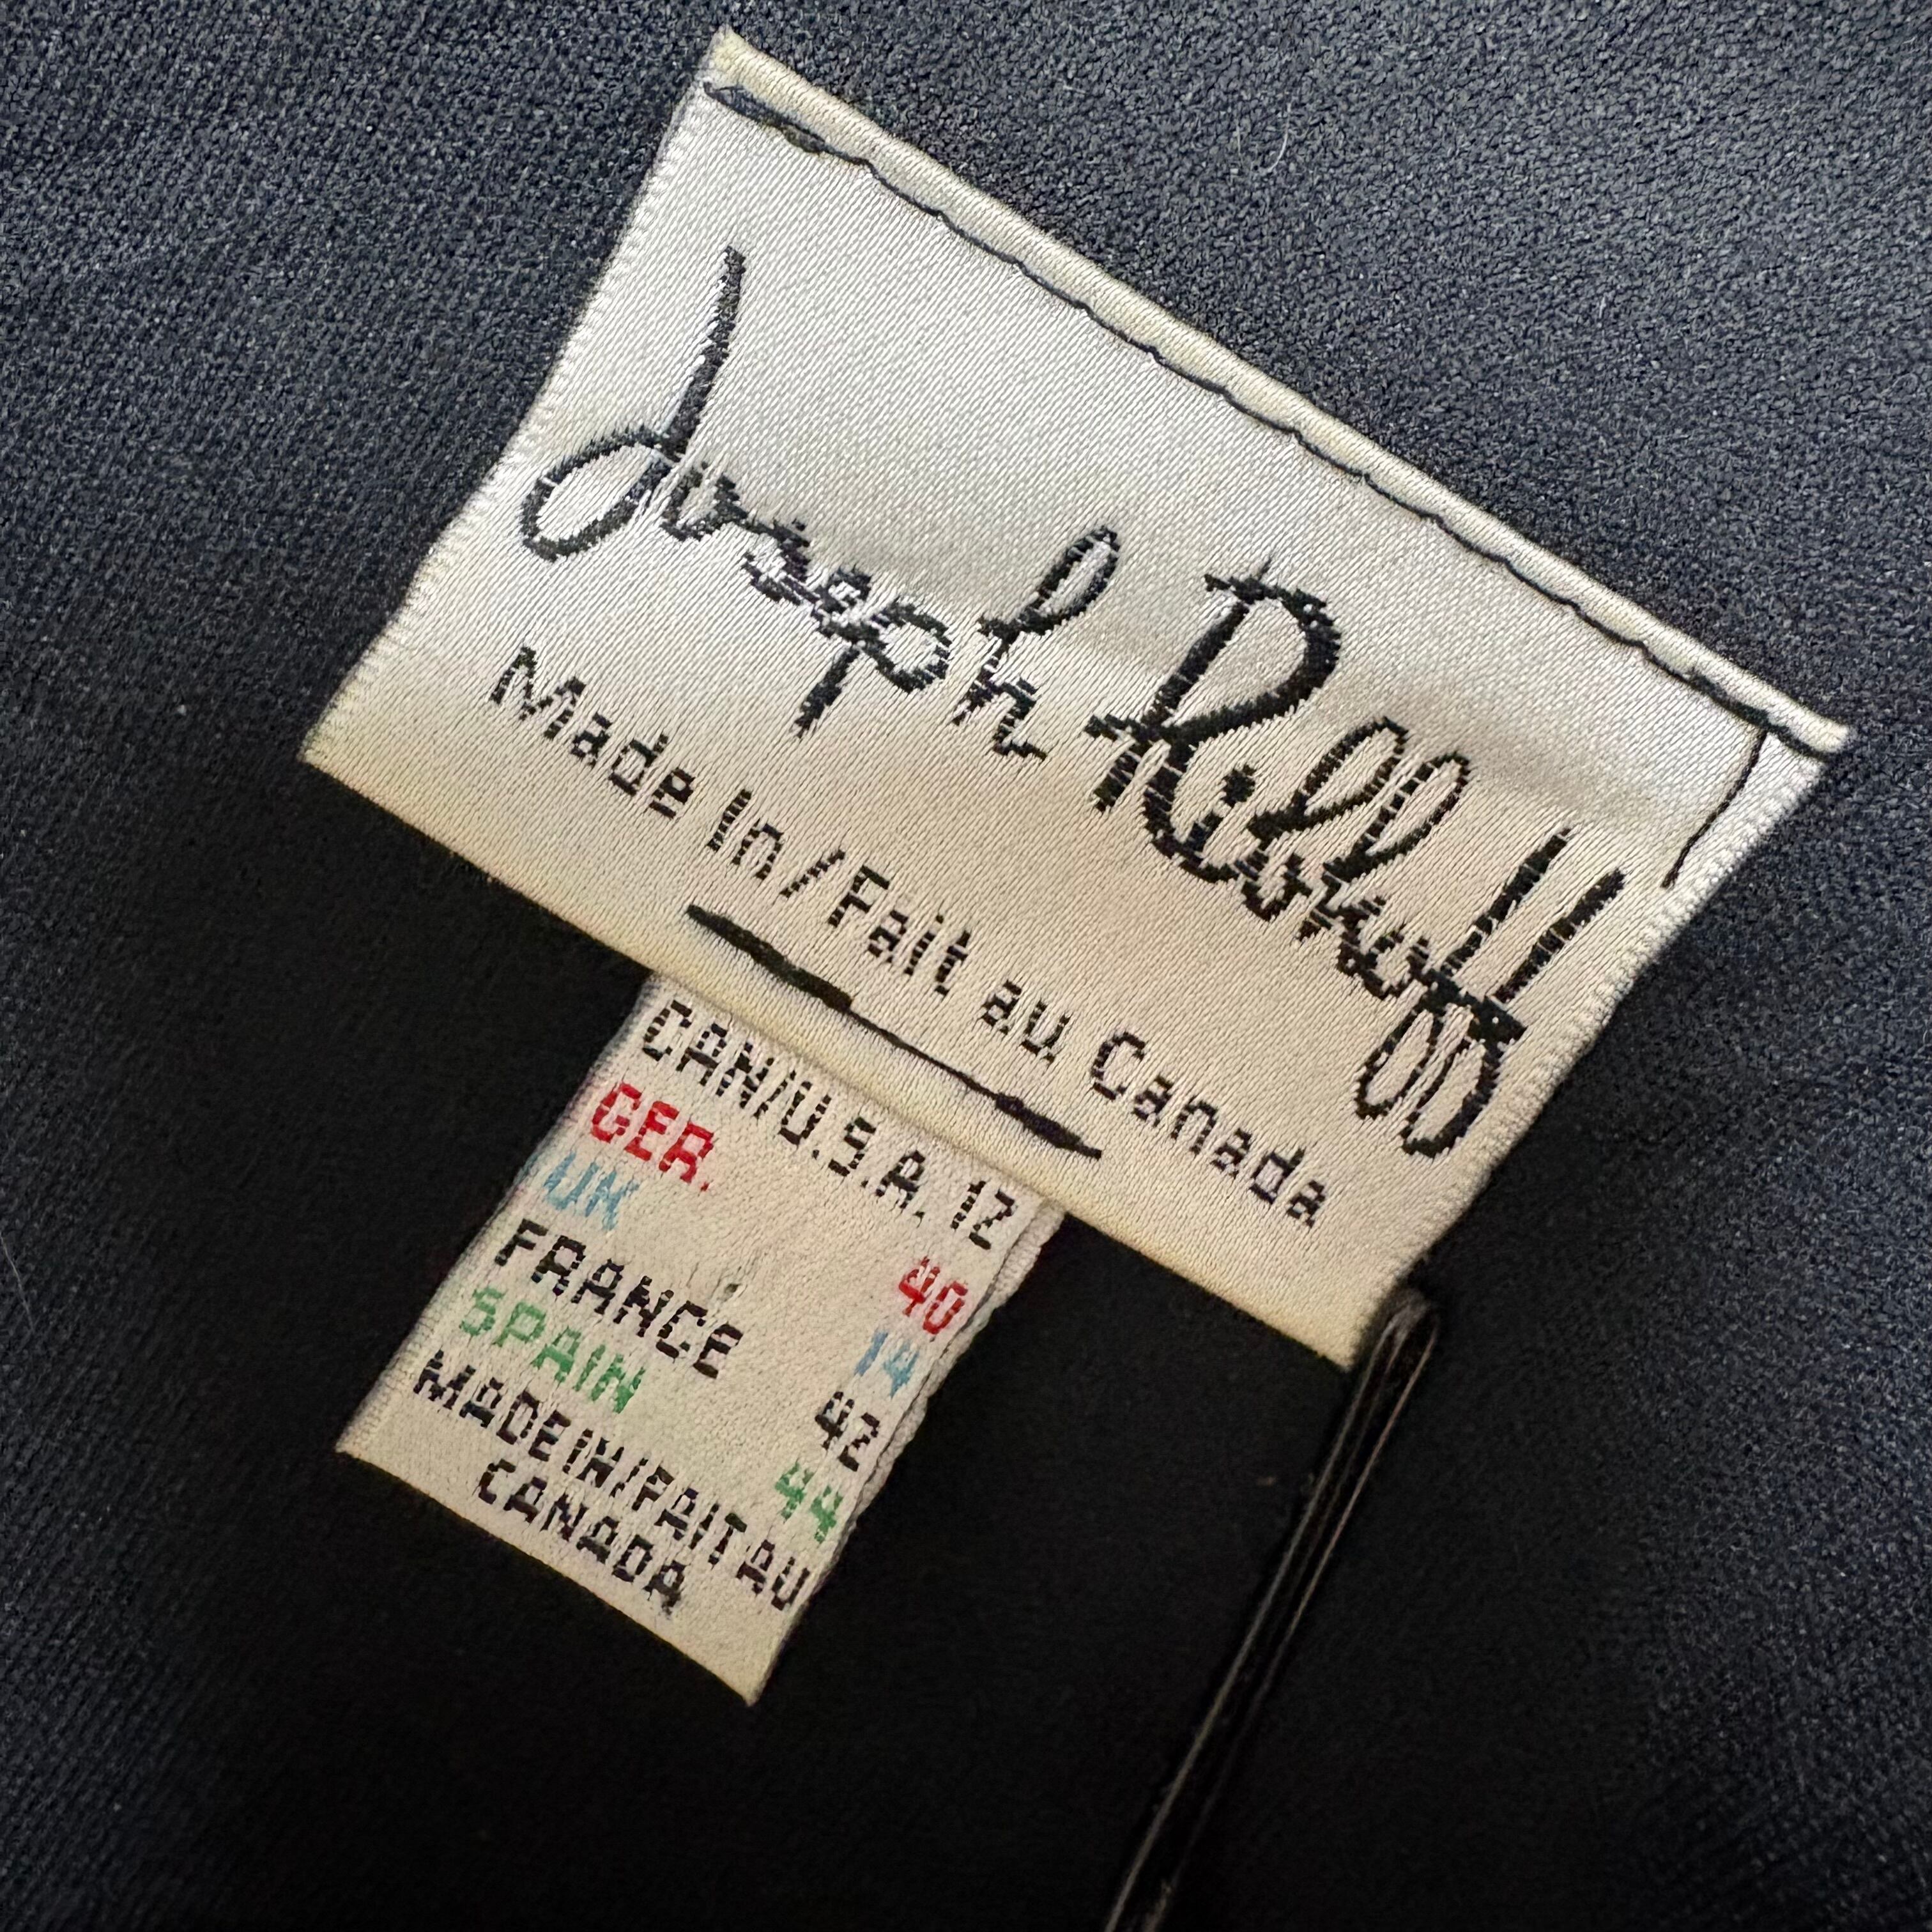 Joseph Ribkoff
Made In/Fait au Canada
CAN/U.S.A. 12
GER. 40
UK 14
FRANCE 42
SPAIN 44
MADE IN/FAIT AU
CANADA